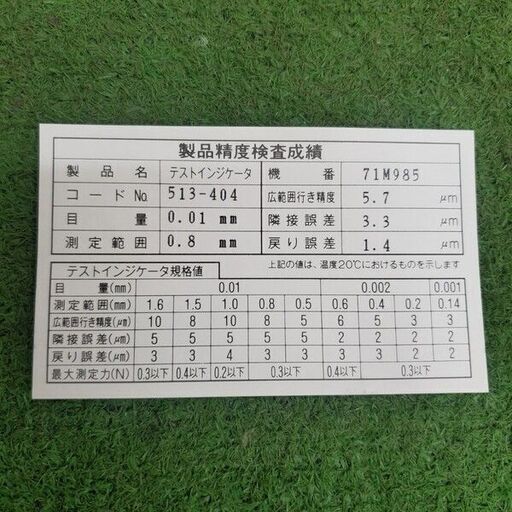 製品精度検査成績
製品名 テストインジケータ 機番 71M985
コードNo. 513-404 広範囲行き精度 5.7 μm
目量 0.01 mm 隣接誤差 3.3 μm
測定範囲 0.8 mm 戻り誤差 1.4 μm
テストインジケータ規格値 上記の値は、温度20℃におけるものを示します
目量(mm) 0.01 0.002 0.001
測定範囲(mm) 1.6 1.5 1.0 0.8 0.5 0.6 0.4 0.2 0.14
広範囲行き精度(μm) 10 8 10 8 5 6 5 3 3
隣接誤差(μm) 5 5 5 5 5 2 2 2 2
戻り誤差(μm) 3 3 4 3 3 3 3 2 2
最大測定力(N) 0.3以下 0.4以下 0.2以下 0.3以下 0.4以下 0.3以下